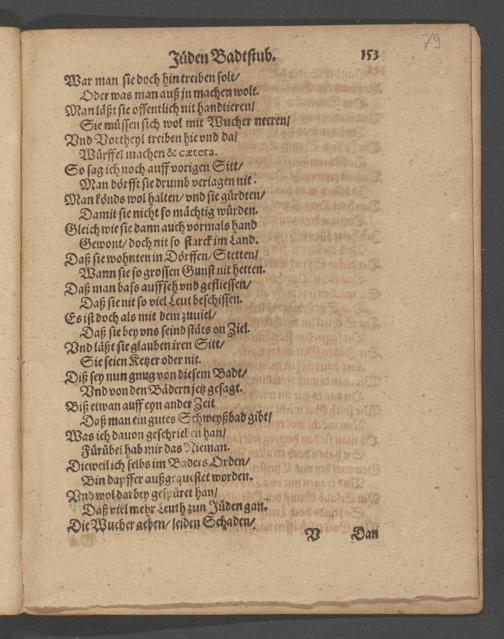 79
Jüden Badtstub. 153
War man sie doch hin treiben solt/
Oder was man auß jn machen wolt.
Man läßt sie offentlich nit handtieren/
Sie müssen sich wol mit Wucher neeren/
Vnd Vortheyl treiben hie vnd da/
Würffel machen & cætera.
So sag ich noch auff vorigen Sitt/
Man dörfft sie drumb verlagen nit.
Man könds wol halten/ vnd sie gürdten/
Damit sie nicht so mächtig würden.
Gleich wie sie dann auch vormals hand
Gewont/ doch nit so starck im Land.
Daß sie wohnten in Dörffen/ Stetten/
Wann sie so grossen Gunst nit hetten.
Daß man bass auffseh vnd gefliessen/
Daß sie nit so viel Leut beschissen.
Es ist doch als mit dem zuuiel/
Daß sie bey vns seind stäts on Ziel.
Vnd läßt sie glauben iren Sitt/
Sie seien Ketzer oder nit.
Diß sey nun gnug von diesem Badt/
Vnd von den Bädern jetz gesagt.
Biß etwan auff eyn ander Zeit
Daß man ein gutes Schweyßbad gibt/
Was ich dauon geschrieben han/
Fürübel hab mir das Nieman.
Dieweil ich selbs im Baders Orden/
Bin dapffer außgequestet worden.
Vnd wol dar bey gespüret han/
Daß viel mehr Leuth zun Jüden gan.
Die Wucher geben/ leiden Schaden/
V Dan